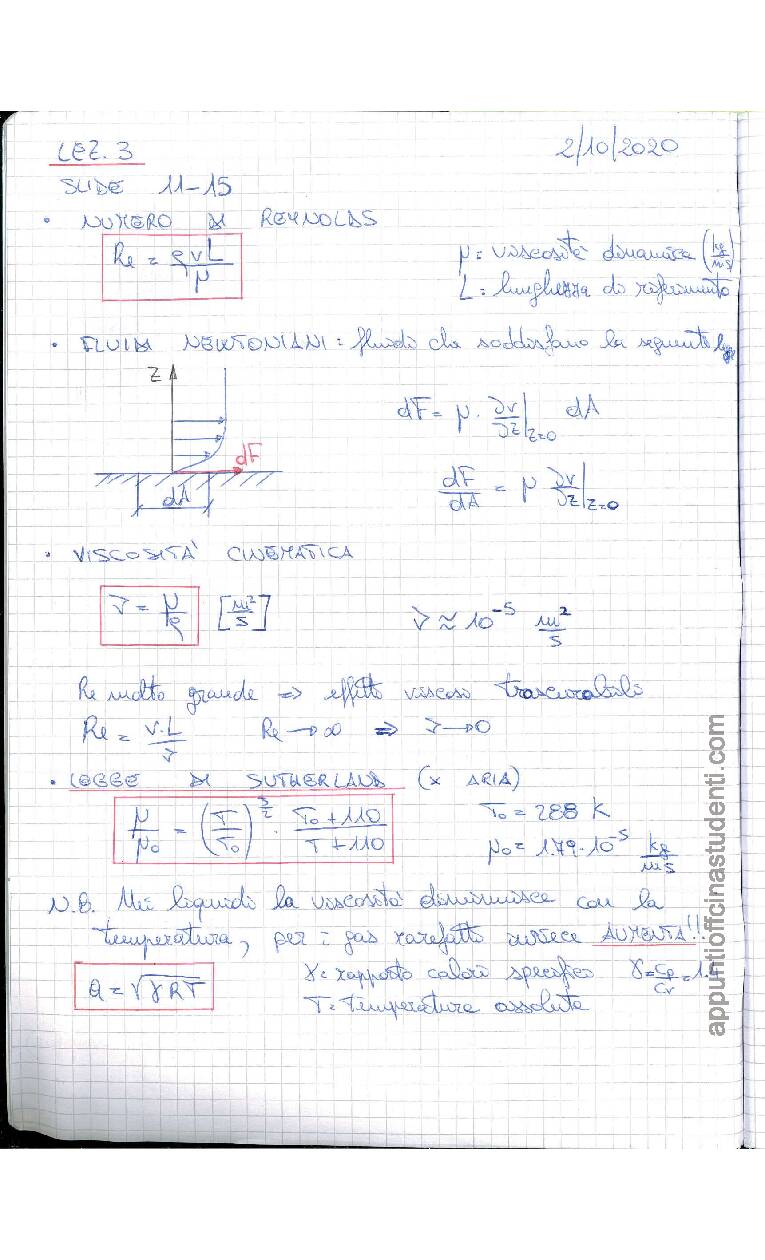 LEZ. 3 2/10/2020
SLIDE 11-15
• NUMERO DI REYNOLDS
Re = ρvL/μ μ = viscosità dinamica (kg/ms)
L = lunghezza di riferimento
• FLUIDI NEWTONIANI = fluidi che soddisfano la seguente legge
Z
dF = μ · ∂v/∂z|z=0 dA
dF
dA
dF/dA = μ ∂v/∂z|z=0
• VISCOSITA' CINEMATICA
ν = μ/ρ [m²/s] ν ≈ 10⁻⁵ m²/s
Re molto grande => effetti viscosi trascurabili
Re = v·L/ν Re → ∞ => ν → 0
• LEGGE DI SUTHERLAND (x ARIA)
μ/μ₀ = (T/T₀)^(3/2) · (T₀+110)/(T+110) T₀ = 288 K
μ₀ = 1.79·10⁻⁵ kg/ms
N.B. Nei liquidi la viscosità diminuisce con la
temperatura, per i gas rarefatti invece AUMENTA!!!
a = √γRT γ = rapporto calori specifici γ = Cp/Cv = 1.4
T = temperatura assoluta
appuntiofficinastudenti.com